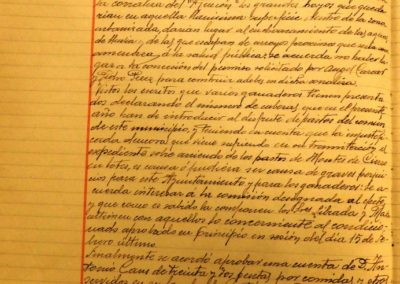 la corraliza del "Rincón", los grandes hoyos que queda-
rían en aquella llanísima superficie, dentro de la zona
urbanizada, darían lugar al embalsamiento de las aguas
de lluvia, y de las que escapan de arroyo próximo que
a la salud pública; se acuerda no haber lu-
gar a la concesión del permiso solicitado por Angel
y Pedro para construir adobes en dicha corraliza.
Vistos los escritos que varios ganaderos tienen presenta-
dos declarando el número de cabezas que en el presente
año han de introducir al disfrute de pastos del común
de este municipio, y teniendo en cuenta que la injustifi-
cada demora que viene sufriendo en su tramitación el
expediente sobre arriendo de los pastos de Montes de Cierzo
en lotes, es causa o pudiera ser causa de graves perjui-
cios para este Ayuntamiento y para los ganaderos: se a-
cuerda interesar a la comisión designada al efecto,
y que como es sabido la componen los Sres.
ultimen con aquellos lo concerniente al condicio-
nado aprobado en principio en sesión del día 15 de Fe-
brero último.
Finalmente se acordó aprobar una cuenta de D. An-
tonio de treinta y dos pesetas por comidas y otros